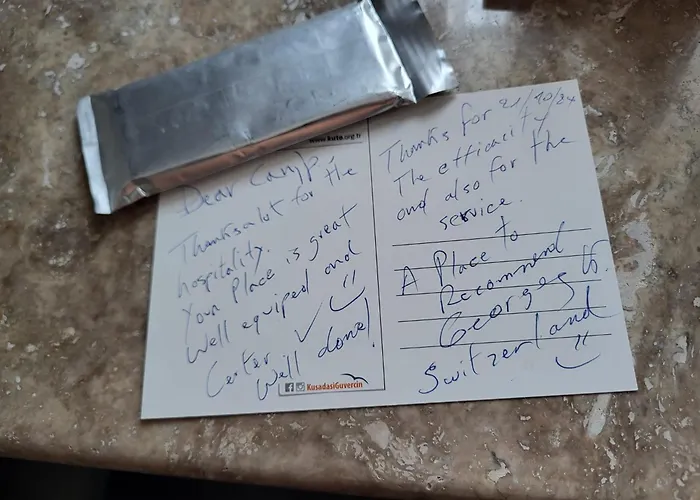 www.kuto.org.tr
Dear Camp,
Thanks a lot for the
hospitality.
Your Place is great
Well equiped and
Center ✓
Well done!
KusadasiGuvercin
21/10/24
Thanks for
The efficacity
and also for the
service.
A Place to
Recommend
Georges
Switzerland